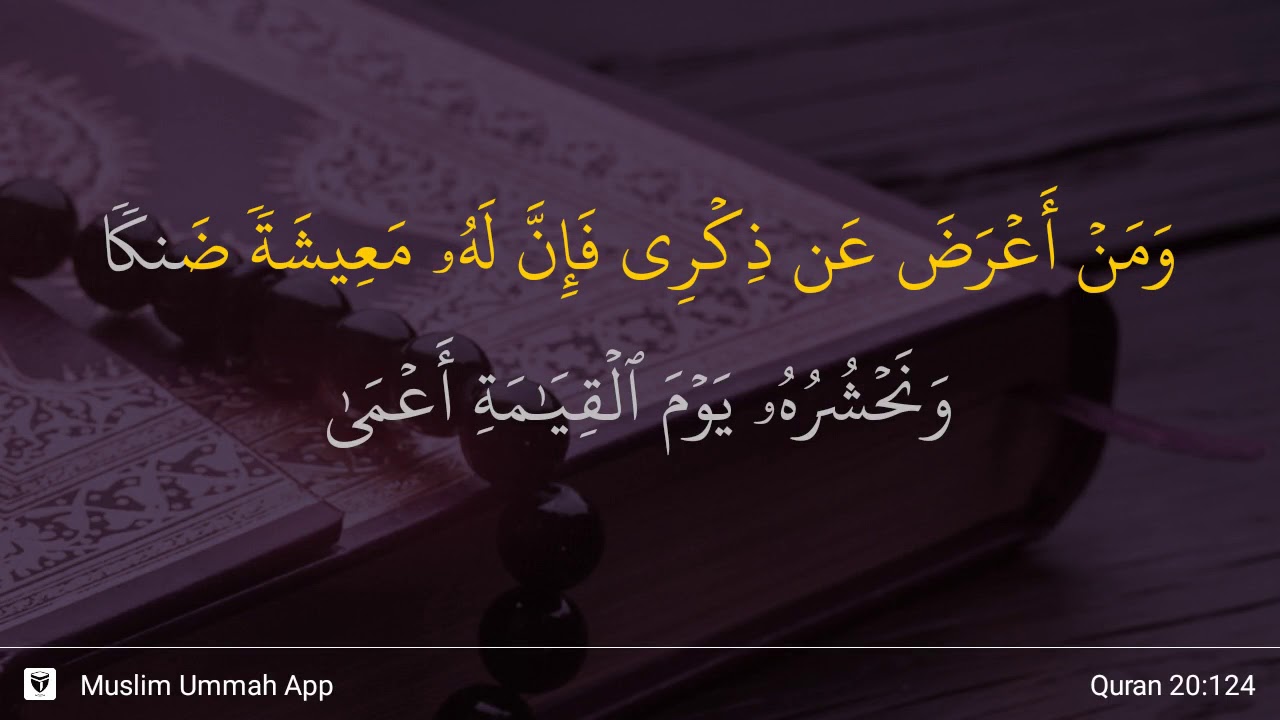 وَمَنۡ أَعۡرَضَ عَن ذِكۡرِى فَإِنَّ لَهُۥ مَعِيشَةً ضَنكًا
وَنَحۡشُرُهُۥ يَوۡمَ ٱلۡقِيَـٰمَةِ أَعۡمَىٰ
Muslim Ummah App
Quran 20:124